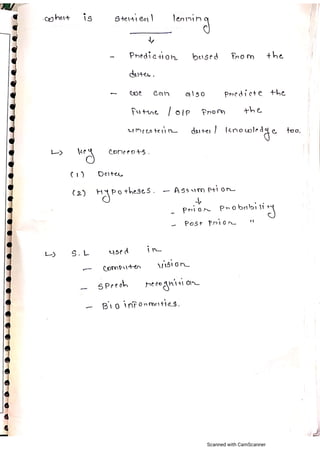 what is statistical learning
↓
- Prediction based from the
data.
- we can also predicte the
future / O/P from the
uncertain data / knowledge too.
↳ key concepts.
(1) Data
(2) Hypotheses. - Assumption
↓
- prior probability
- Post prior "
↳ S.L used in
- computer vision
- Speech recognition
- Bioinformatics.
Scanned with CamScanner